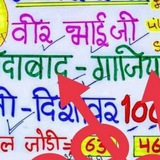 वीर भाई जी
दाबाद - गाजिय
ी - दिशावर 10
ल जोडी → 63 46